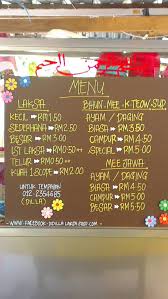 MENU
LAKSA
KECIL → RM1.50
SEDERHANA → RM2.50
BESAR → RM3.00
LAKSA → RM0.50
TELUR → RM0.50
KUAH 1 SCOPE → RM2.00
UNTUK TEMPAHAN
012 2354485
(DILLA)
BIHUN. MEE. K.TEOW SUP
AYAM / DAGING
BIASA → RM3.50
CAMPUR → RM4.50
SPECIAL → RM5.00
MEE JAWA
AYAM / DAGING
BIASA → RM4.50
CAMPUR → RM5.00
BESAR → RM5.50